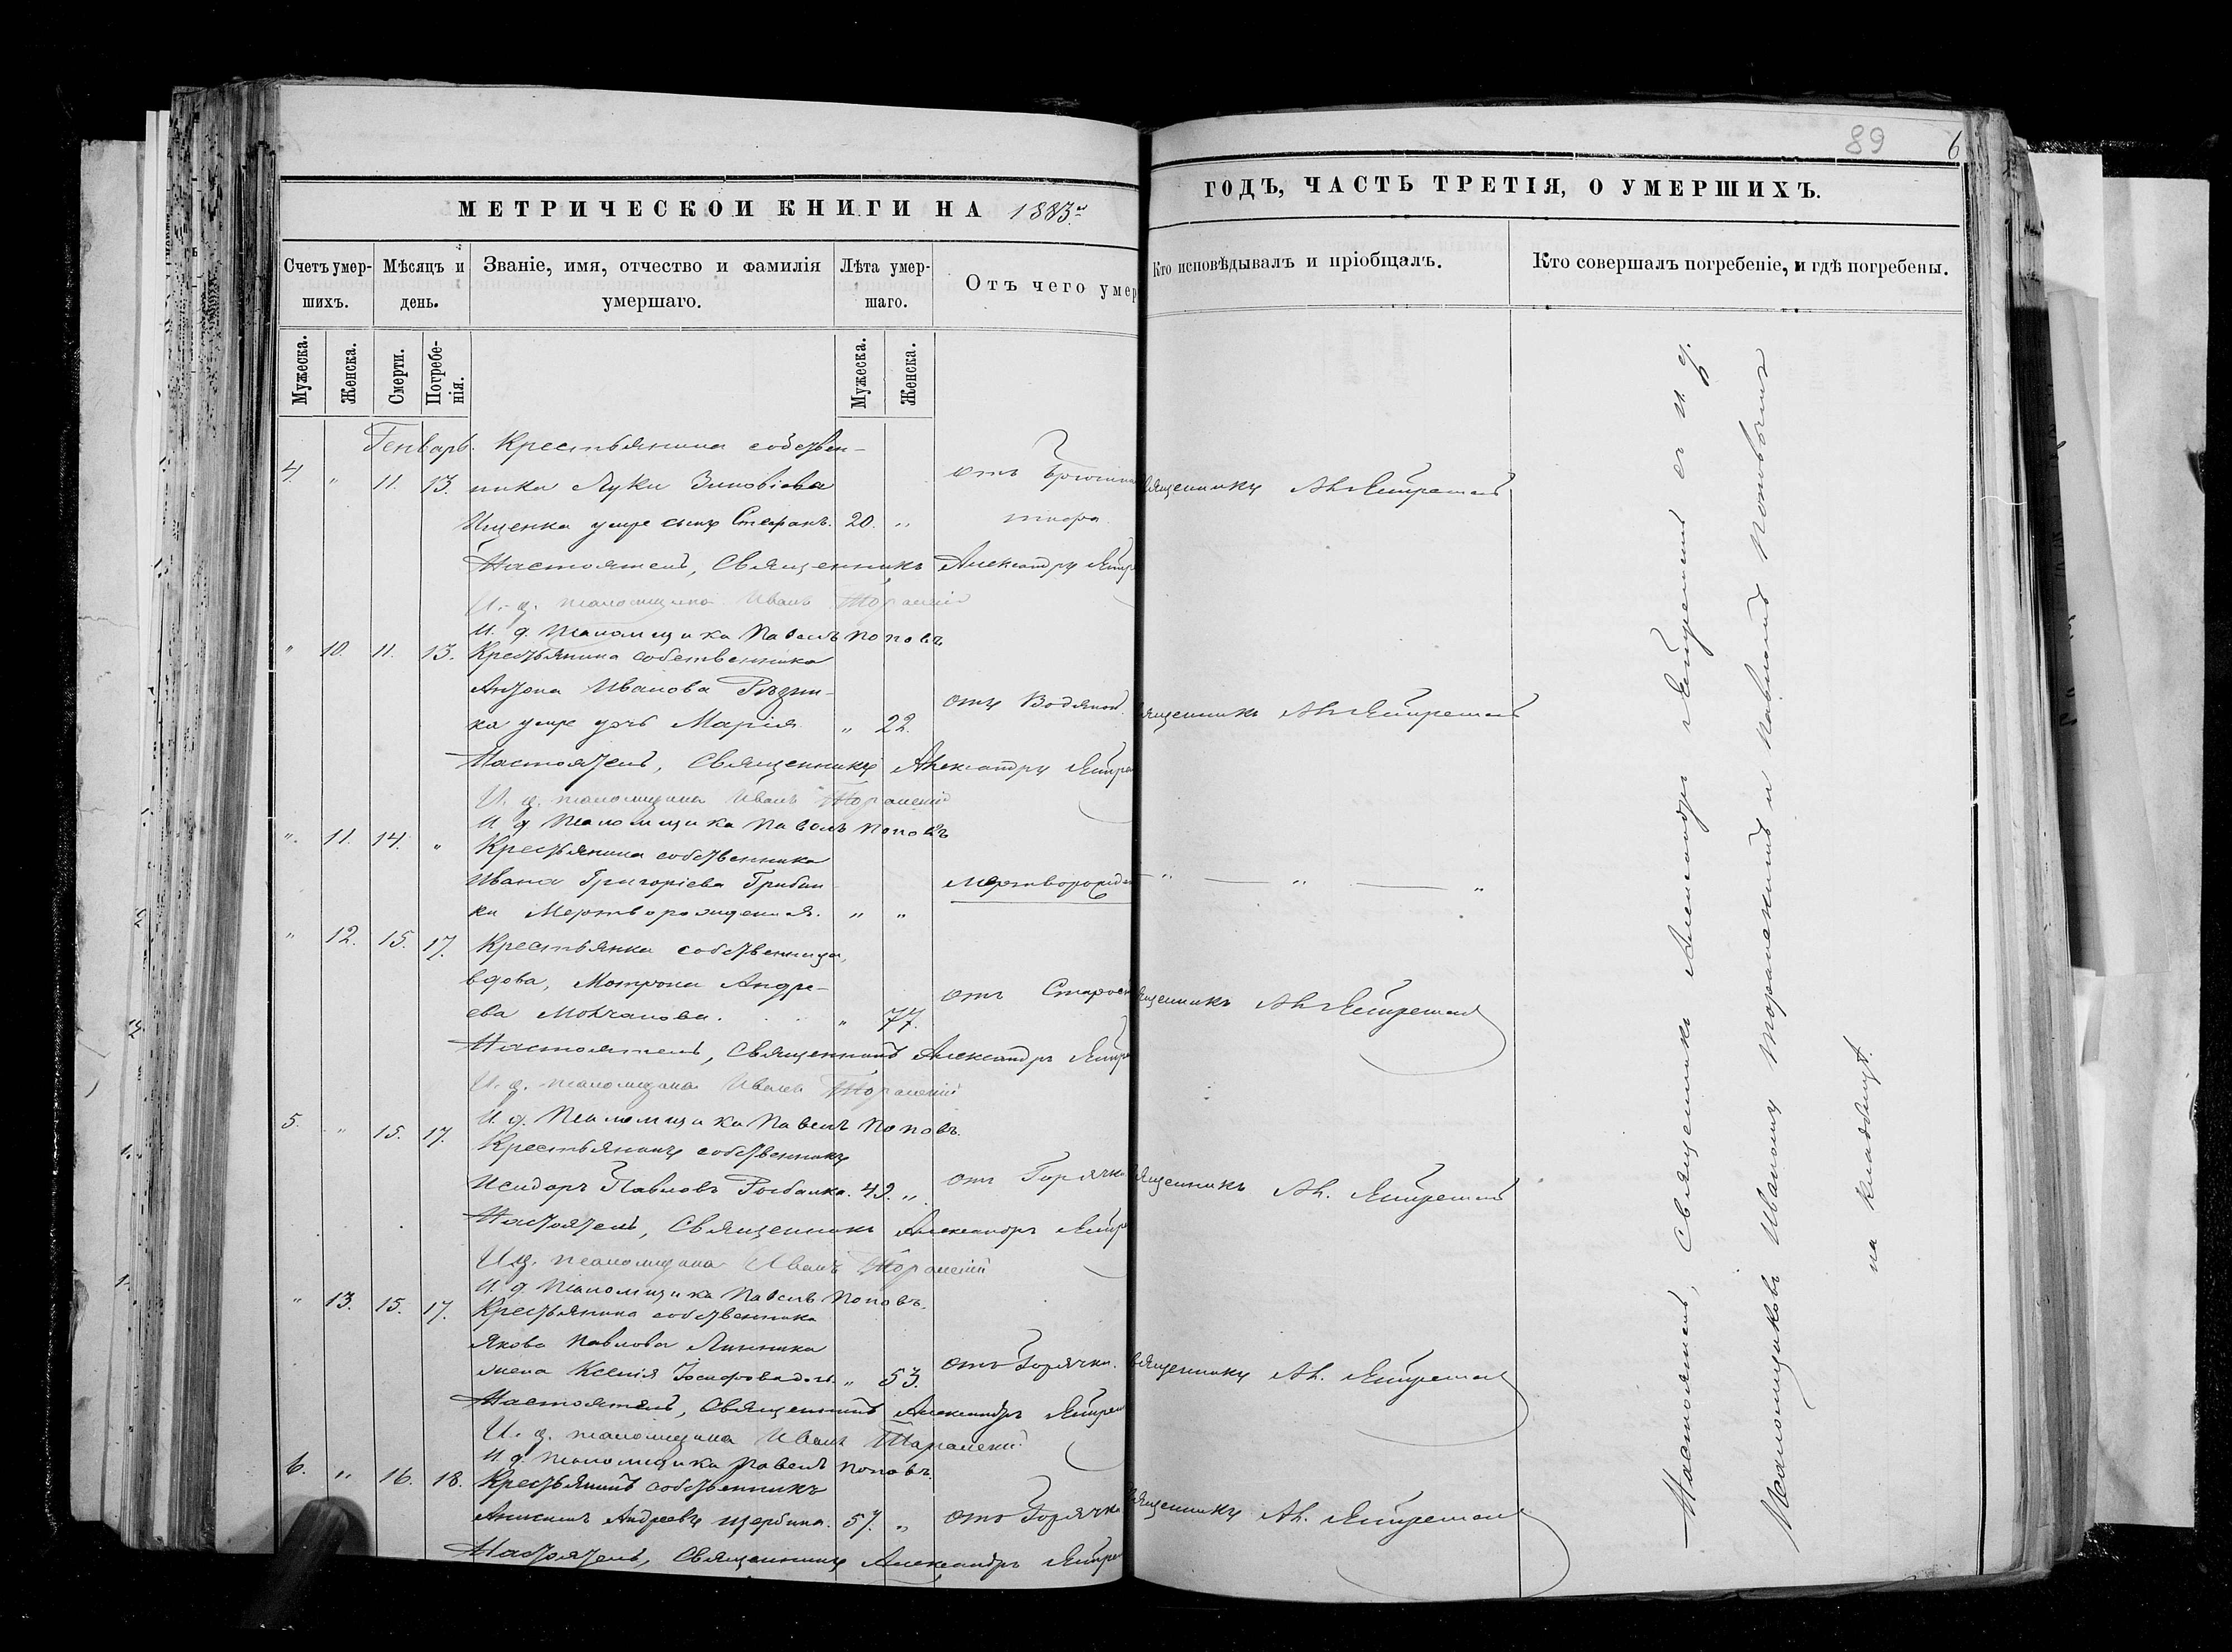 89
6
МЕТРИЧЕСКОЙ КНИГИ НА 1883 г.
ГОДЪ, ЧАСТЬ ТРЕТІЯ, О УМЕРШИХЪ.
Счетъ умер-
шихъ.
Мѣсяцъ и
день.
Званіе, имя, отчество и фамилія
умершаго.
Лѣта умер-
шаго.
Отъ чего умер
Кто исповѣдывалъ и пріобщалъ.
Кто совершалъ погребеніе, и гдѣ погребены.
Мужеска.
Женска.
Смерти.
Погребе-
нія.
Мужеска.
Женска.
Генварь. Крестьянина собствен-
4. " 11. 13. ника Луки Зиновіева отъ священникъ Ал.
Ищенка умре сынъ Стефанъ. 20. "
Настоятель, Священникъ Александръ
И. д. псаломщика Иванъ
И. д. Псаломщика Павелъ Поповъ.
" 10. 11. 13. Крестьянина собственника
Антона Иванова отъ Водяной. священникъ Ал.
ка умре дочь Марія " 22.
Настоятель, Священникъ Александръ
И. д. псаломщика Иванъ
И. д. Псаломщика Павелъ Поповъ
" 11. 14. " Крестьянина собственника
Ивана Григоріева мертворожден " " "
ка Мертворожденная. " "
" 12. 15. 17. Крестьянка собственница,
вдова, Матрона Андре- отъ Старос священникъ Ал.
ева Молчанова. " 77.
Настоятель, Священникъ Александръ
И. д. псаломщика Иванъ
И. д. Псаломщика Павелъ Поповъ.
5. " 15. 17. Крестьянинъ собственникъ
Исидоръ Павловъ Рыбалка. 49. " отъ Горячки священникъ Ал.
Настоятель, Священникъ Александръ
И. д. псаломщика Иванъ
И. д. Псаломщика Павелъ Поповъ.
" 13. 15. 17. Крестьянина собственника
Якова Павлова Линника
жена Ксенія Іосифова " 53. отъ Горячки. священникъ Ал.
Настоятель, Священникъ Александръ
И. д. псаломщика Иванъ
И. д. Псаломщика Павелъ Поповъ.
6. " 16. 18. Крестьянинъ собственникъ
Андреевъ Щербина. 57. " отъ Горячки священникъ Ал.
Настоятель, Священникъ Александръ
Настоятель, Священникъ Александръ съ и. д.
Псаломщиковъ Иваномъ и Павломъ Поповымъ
на кладбищѣ.